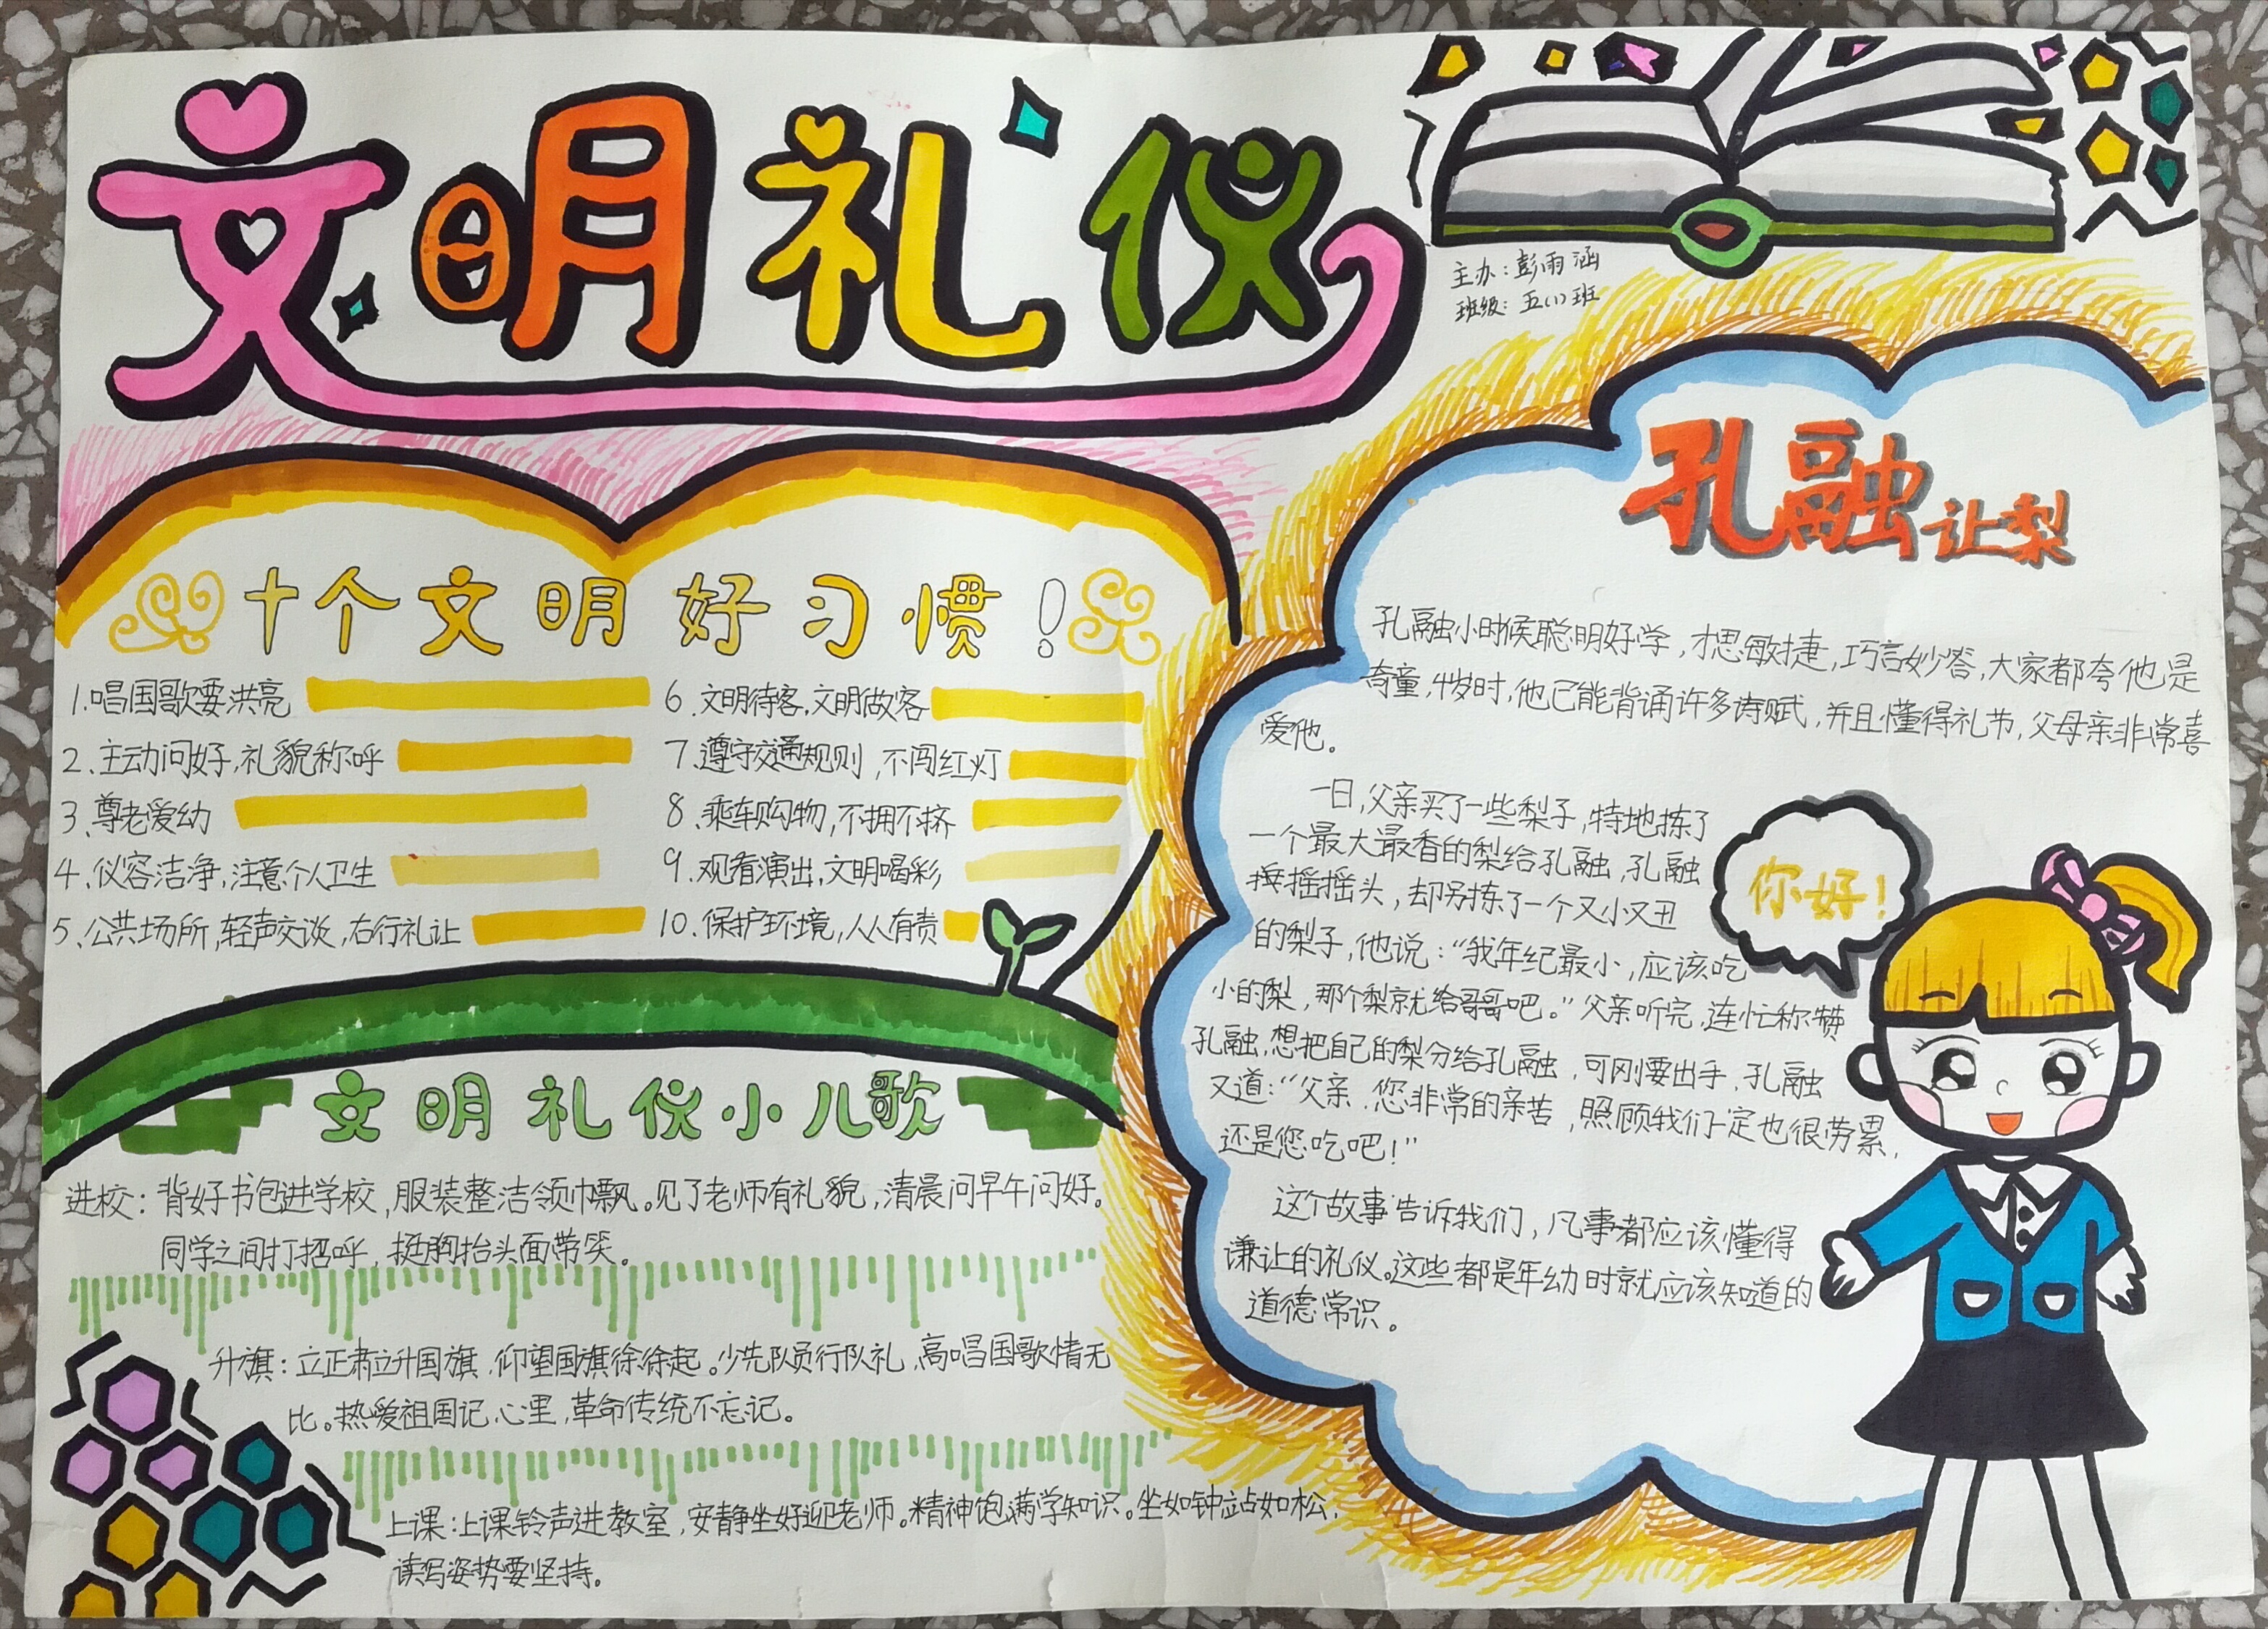 文明礼仪
主办：彭雨涵
班级：五(1)班
十个文明好习惯！
1.唱国歌要洪亮
2、主动问好，礼貌称呼
3、尊老爱幼
4、仪容洁净，注意个人卫生
5、公共场所，轻声交谈，右行礼让
6、文明待客，文明做客
7、遵守交通规则，不闯红灯
8、乘车购物，不拥不挤
9、观看演出，文明喝彩
10、保护环境，人人有责
文明礼仪小儿歌
进校：背好书包进学校，服装整洁领巾飘。见了老师有礼貌，清晨问早午问好。
同学之间打招呼，挺胸抬头面带笑。
升旗：立正肃立升国旗，仰望国旗徐徐起。少先队员行队礼，高唱国歌情无
比。热爱祖国记心里，革命传统不忘记。
上课：上课铃声进教室，安静坐好迎老师。精神饱满学知识。坐如钟站如松，
读写姿势要坚持。
孔融让梨
孔融小时候聪明好学，才思敏捷，巧言妙答，大家都夸他是
奇童，4岁时，他已能背诵许多诗赋，并且懂得礼节，父母亲非常喜
爱他。
一日，父亲买了一些梨子，特地拣了
一个最大最香的梨给孔融，孔融
摇摇头，却另拣了一个又小又丑
的梨子，他说：“我年纪最小，应该吃
小的梨，那个梨就给哥哥吧。”父亲听完，连忙称赞
孔融，想把自己的梨分给孔融，可刚要出手，孔融
又道：“父亲，您非常的亲苦，照顾我们一定也很劳累，
还是您吃吧！”
这个故事告诉我们，凡事都应该懂得
谦让的礼仪。这些都是年幼时就应该知道的
道德常识。
你好！